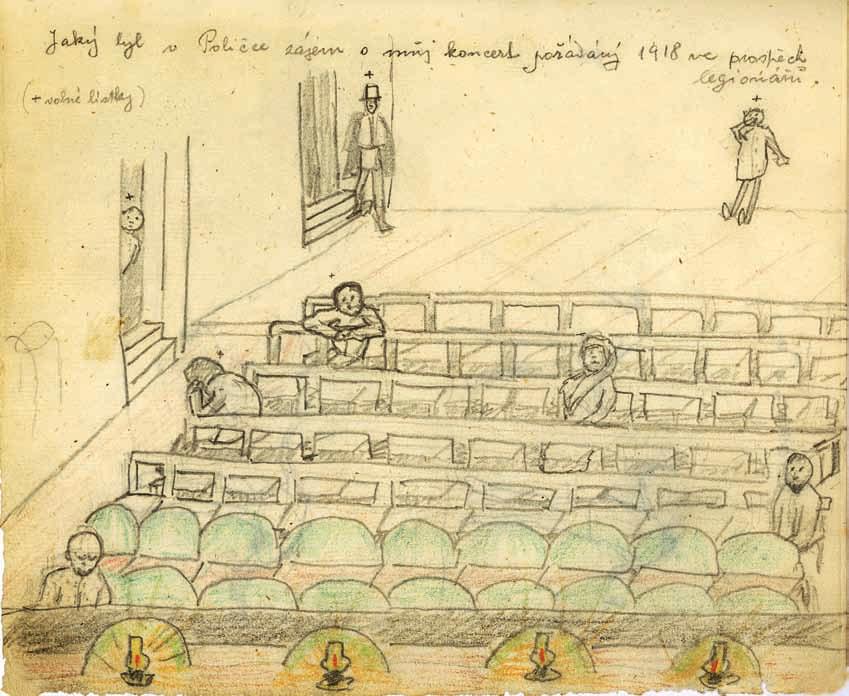 Jaký byl v Poličce zájem o můj koncert pořádáný 1918 ve prospěch
legionářů.
(+ volné lístky)